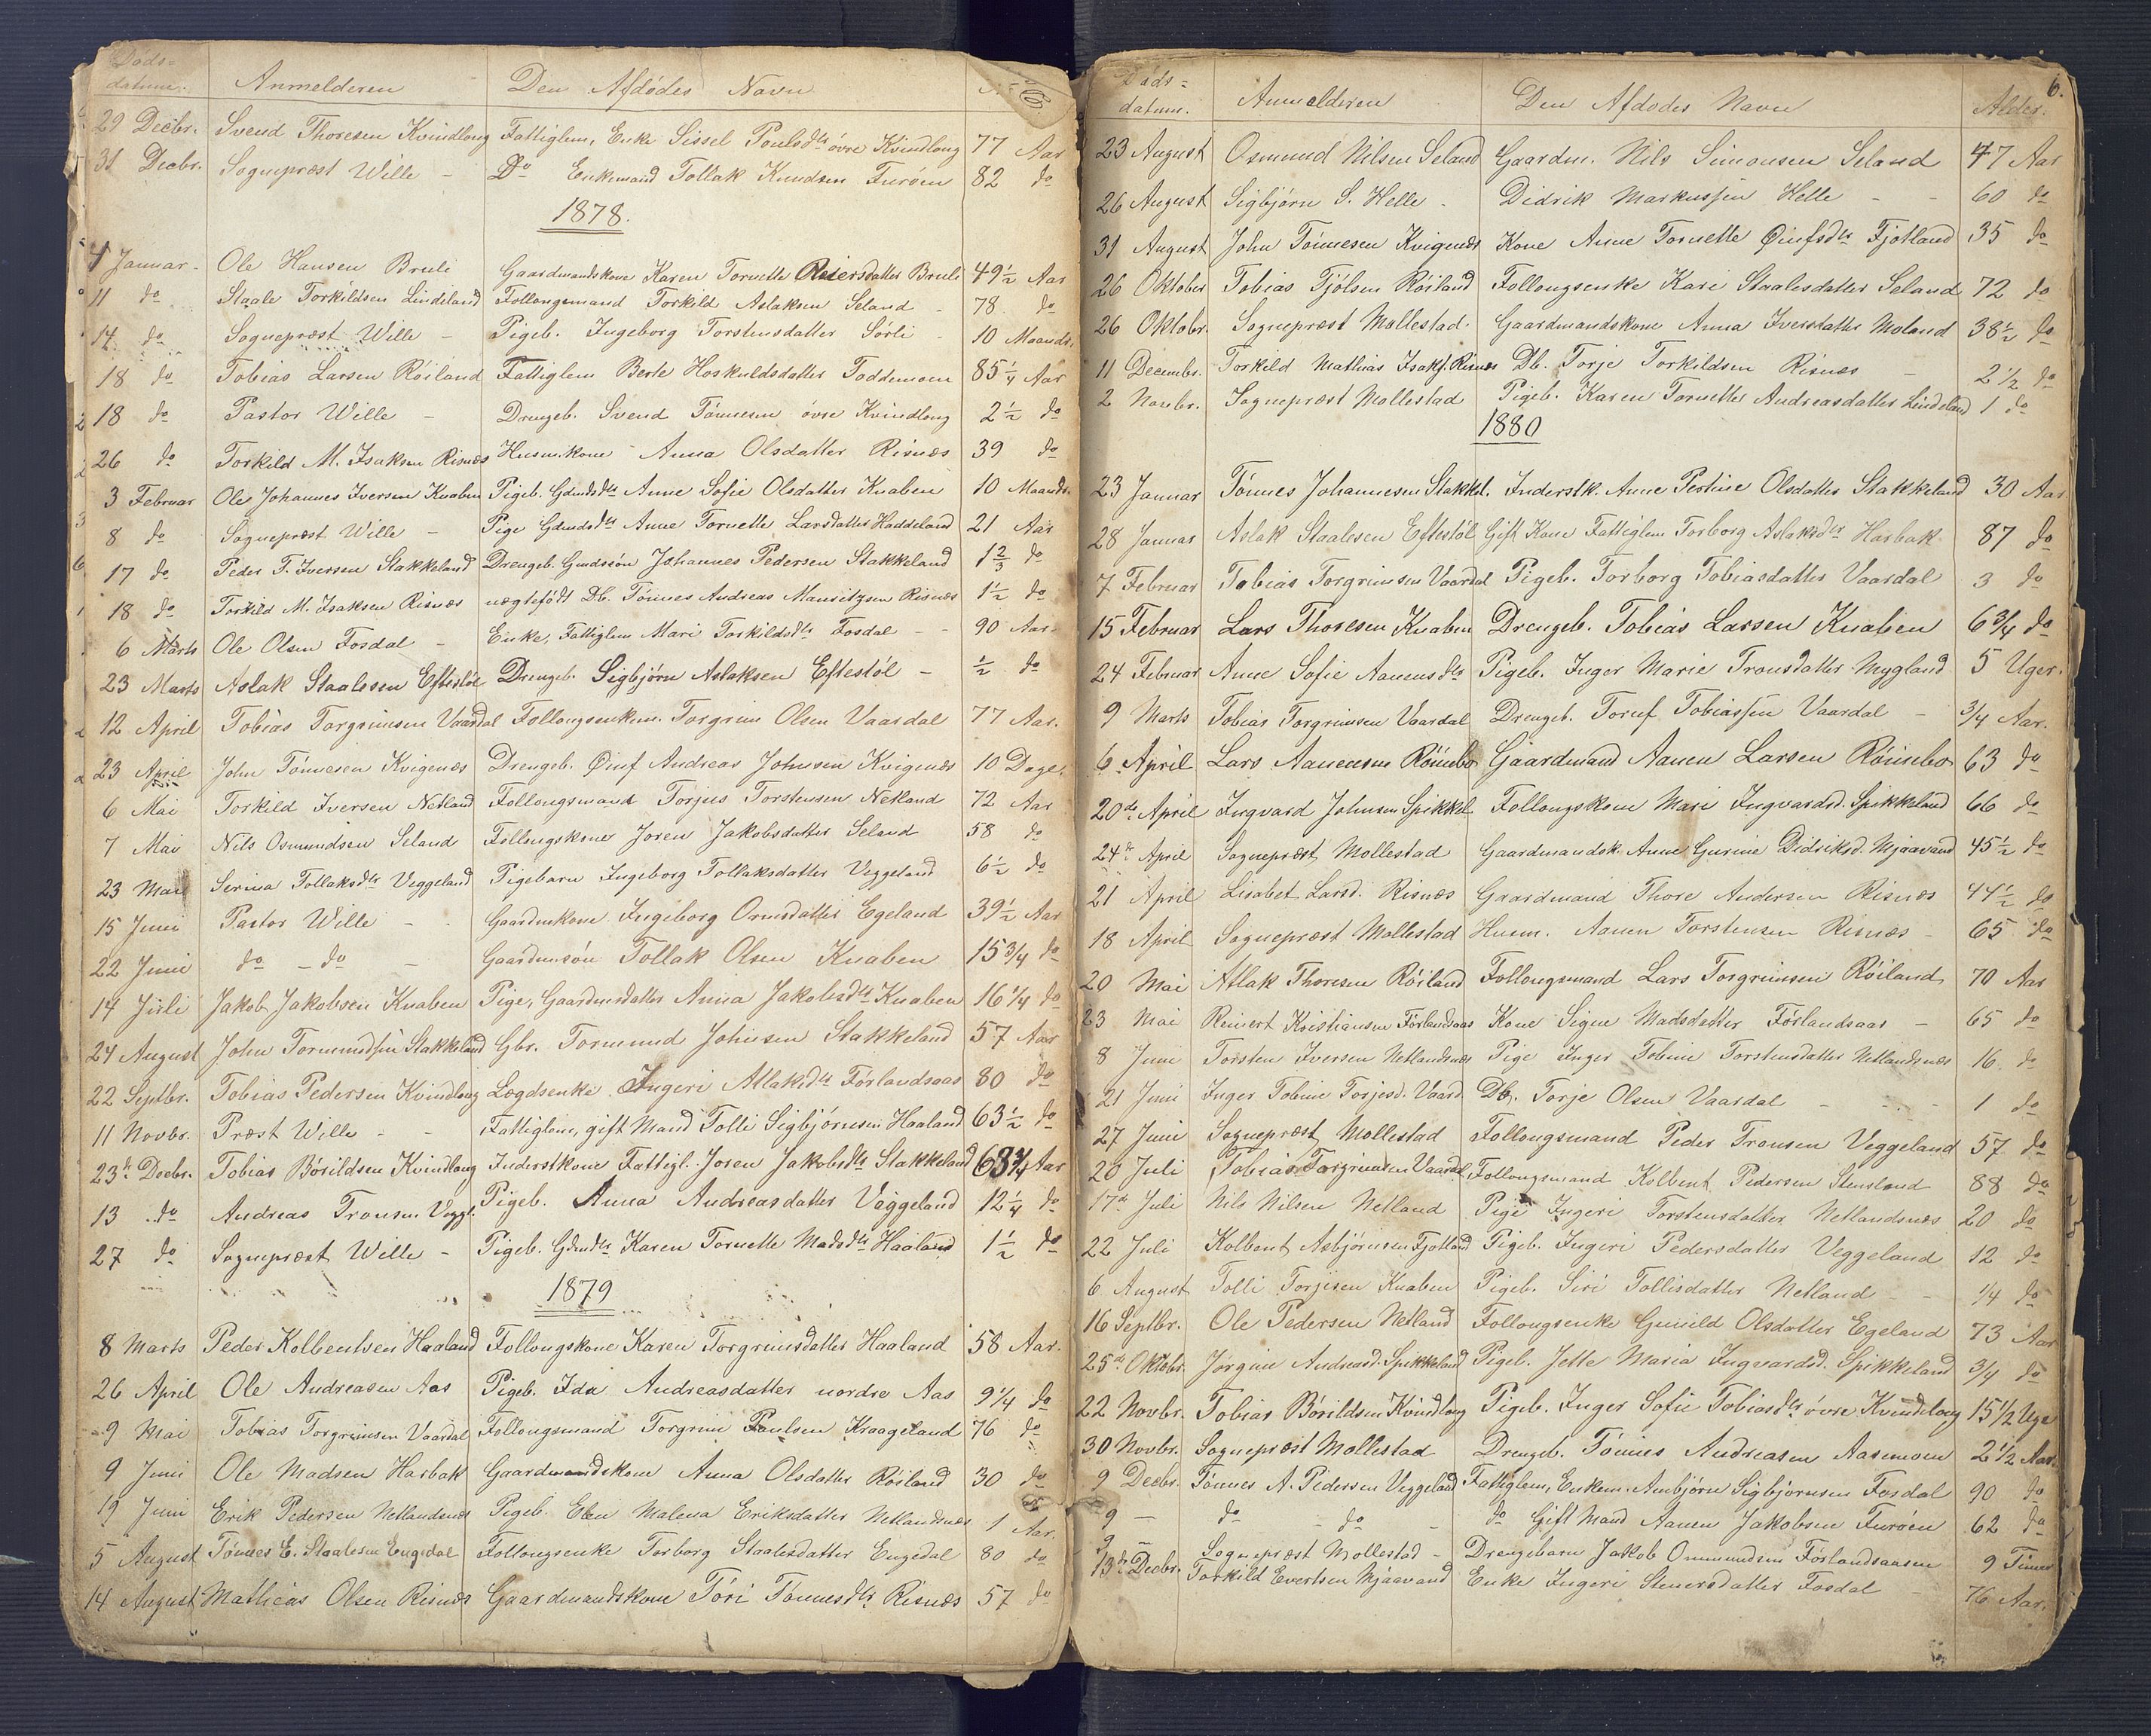 Døds-
datum. Anmelderen Den Afdødes Navn
29 Decbr. Svend Thoresen Kvindlong Fattiglem, Enke Sissel Poulsdtr øvre Kvindlong 77 Aar
31 Decbr. Sognepræst Wille - Do Enkemand Tollak Knudsen Furøen 82 do
1878.
4 Januar Ole Hansen Bruli Gaardmandskone Karen Tornette Reiersdatter Bruli 49½ Aar
11 do Staale Torkildsen Lindeland Follougsmand Torkild Aslaksen Seland - 78 do
14 do Sognepræst Wille - Pigeb. Ingeborg Torstensdatter Sørli - 10 Maander
18 do Tobias Larsen Röiland Fattiglem Berte Hoskuldsdatter Toddemoen 85¼ Aar
18 do Pastor Wille - Drengeb. Svend Tönnesen øvre Kvindlong 2½ do
26 do Torkild M. Isaksen Risnæs Husm.kone Anna Olsdatter Risnæs 39 do
3 Februar Ole Johannes Iversen Knaben Pigeb. Gdmdsdtr Anne Sofie Olsdatter Knaben 10 Maander
8 do Sognepræst Wille - Pige Gdmdsdtr Anne Tornette Larsdatter Haddeland 21 Aar
17 do Peder T. Iversen Stakkeland Drengeb. Gmdssön Johannes Pedersen Stakkeland 1⅔ do
18 do Torkild M. Isaksen Risnæs uægtefödt Db. Tönnes Andreas Mauritzsen Risnæs 1½ do
6 Marts Ole Olsen Fosdal - Enke, Fattiglem Mari Torkildsdtr Fosdal - - 90 Aar
23 Marts Aslak Staalesen Eftestöl Drengeb. Sigbjørn Aslaksen Eftestöl - ½ do
12 April Tobias Torgrimsen Vaardal Follougsenkem. Torgrim Olsen Vaardal 77 Aar.
23 April John Tönnesen Kvigenæs Drengeb. Øinf Andreas Johnsen Kvigenæs 10 Dage.
6 Mai Torkild Iversen Netland Follougsmand Torjus Torstensen Netland 72 Aar
7 Mai Nils Osmundsen Seland Follougskone Joren Jakobsdatter Seland 58 do
23 Mai Serina Tollaksdtr Veggeland Pigebarn Ingeborg Tollaksdatter Veggeland 6½ do
15 Juni Pastor Wille - - Gaardmkone Ingeborg Ormsdatter Egeland 39½ Aar
22 Juni do - do - Gaardmsön Tollak Olsen Knaben 15¾ do
14 Juli Jakob Jakobsen Knaben Pige, Gaardmsdatter Anna Jakobsdtr Knaben 16¼ do
24 August John Tormundsen Stakkeland Gbr. Tormund Johnsen Stakkeland 57 Aar
22 Septbr. Tobias Pedersen Kvindlong Lægdsenke Ingeri Atlaksdtr Förlandsaas 80 do
11 Novbr. Præst Wille - - Fattiglem, gift Mand Tolli Sigbjörnsen Haaland 63½ do
23de Decbr. Tobias Börildsen Kvindlong Inderstkone Fattigl. Joren Jakobsdtr Stakkeland 63¾ Aar
13 do Andreas Tronsen Veggl. Pigeb. Anna Andreasdatter Veggeland 12¼ do
27 do Sognepræst Wille - Pigeb. Gdmdtr Karen Tornette Madsdtr Haaland 1½ do
1879
8 Marts Peder Kolbentsen Haaland Follougskone Karen Torgrimsdatter Haaland 58 Aar.
26 April Ole Andreasen Aas Pigeb. Ida Andreasdatter nordre Aas 9¼ do
9 Mai Tobias Torgrimsen Vaardal Follougsmand Torgrim Paulsen Kraageland 76 do
9 Juni Ole Madsen Harbak Gaardmandskone Anna Olsdatter Röiland 30 do
19 Juni Erik Pedersen Netlandsnæs Pigeb. Elen Malena Eriksdatter Netlandsnæs 1 Aar.
5 August Tönnes E. Staalesen Engedal Follougsenke Torborg Staalesdatter Engedal 80 do
14 August Mathias Olsen Risnæs Gaardmandskone Töri Tönnesdtr Risnæs 57 do
6.
Døds-
datum. Anmelderen Den Afdødes Navn Alder.
23 August Osmund Nilsen Seland Gaardm. Nils Simonsen Seland 47 Aar
26 August Sigbjørn S. Helle - Didrik Markussen Helle - - 60 do
31 August John Tönnesen Kvigenæs Kone Anne Tornette Øinfsdtr Fjotland 35 do
26 Oktober Tobias Tjölsen Röiland Follougsenke Kari Staalesdatter Seland 72 do
26 Oktobr. Sognepræst Mollestad. Gaardmandskone Anna Iversdatter Moland 38½ do
11 Decembr. Torkild Mathias Isaks. Risnæs Db. Torje Torkildsen Risnæs - 2½ do
2 Novbr. Sognepræst Mollestad Pigeb. Karen Tornette Andreasdatter Lindeland 1 do
1880
23 Januar Tönnes Johannesen Stakkel. Inderstk. Anne Pertine Olsdatter Stakkeland 30 Aar
28 Januar Aslak Staalesen Eftestöl Gift Kone Fattiglem Torborg Aslaksdtr Harbak 87 do
7 Februar Tobias Torgrimsen Vaardal Pigeb. Torborg Tobiasdatter Vaardal 3 do
15 Februar Lars Thoresen Knaben Drengeb. Tobias Larsen Knaben 6¾ do
24 Februar Anne Sofie Aanensdtr Pigeb. Inger Marie Tronsdatter Mygland 5 Uger.
9 Marts Tobias Torgrimsen Vaardal Drengeb. Toruf Tobiassen Vaardal - ¾ Aar.
6 April Lars Aanensen Rönnebo Gaardmand Aanen Larsen Rönnebo 63 do
20de April Ingvard Johnsen Spikkel. Follougskone Mari Ingvardsd. Spikkeland 66 do
24de April Sognepræst Mollestad Gaardmandsk. Anne Gurine Didriksd. Mjaavand 45½ do
21 April Lisabet Larsd. Risnæs Gaardmand Thore Andersen Risnæs 44½ do
18 April Sognepræst Mollestad Husm. Aanen Torstensen Risnæs - 65 do
20 Mai Atlak Thoresen Röiland Follougsmand Lars Torgrimsen Röiland 70 Aar
23 Mai Reinert Kristiansen Förlandsaas Kone Signe Madsdatter Förlandsaas - 65 do
8 Juni Torsten Iversen Netlandsnæs Pige Inger Tobine Torstensdatter Netlandsnæs 16 do
21 Juni Inger Tobine Torjesd. Vaard. Db. Torje Olsen Vaardal - - - 1 do
27 Juni Sognepræst Mollestad Follougsmand Peder Tronsen Veggeland 57 do
20 Juli Tobias Torgrimsen Vaardal Follougsmand Kolbent Pedersen Stensland 88 do
17de Juli Nils Nilsen Netland Pige Ingeri Torstensdatter Netlandsnæs 20 do
22 Juli Kolbent Asbjörnsen Fjotland Pigeb. Ingeri Pedersdatter Veggeland 12 do
6 August Tolli Torjesen Knaben Pigeb. Siri Tollisdatter Netland - - ¼ do
16 Septbr. Ole Pedersen Netland Follougsenke Gunild Olsdatter Egeland 73 Aar
25de Oktobr. Jørgine Andreasd. Spikkeland Pigeb. Jette Maria Ingvardsd. Spikkeland ¾ do
22 Novbr. Tobias Börildsen Kvindlong Pigeb. Inger Sofie Tobiasdtr øvre Kvindlong 15½ Uge
30 Novbr. Sognepræst Mollestad Drengeb. Tönnes Andreasen Aasemoen 2½ Aar.
9 Decbr. Tönnes A. Pedersen Veggeland Fattiglem, Enkem. Anbjörn Sigbjörnsen Fosdal 90 do
9 - do - do - do Gift Mand Aanen Jakobsen Furøen 62 do
9 - Sognepræst Mollestad - Drengebarn Jakob Ommundsen Förlandsaasen 9 Timer
13de Decbr. Torkild Evertsen Mjaavand Enke Ingeri Stenersdatter Fosdal 76 Aar.